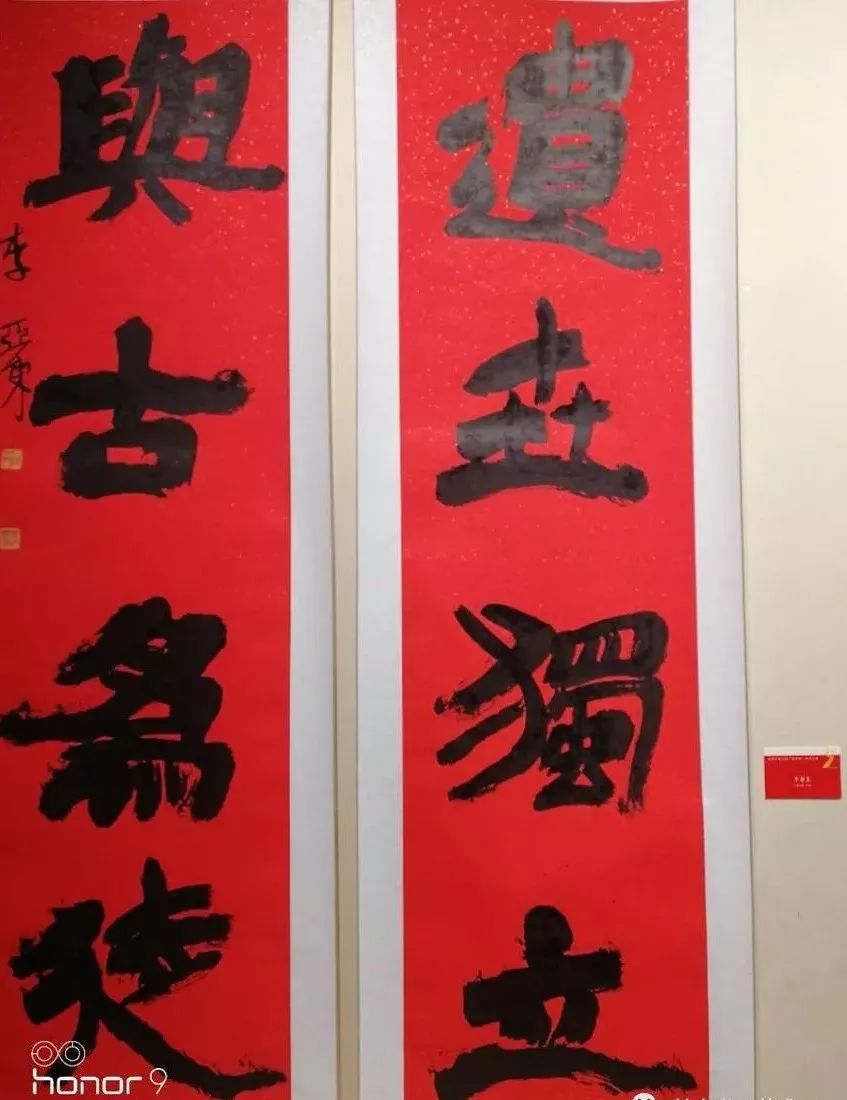 遺世獨立
與古為徒
李亞東
honor 9